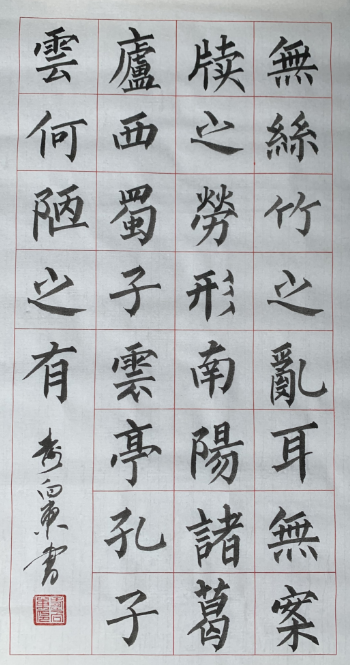 無絲竹之亂耳無案
牍之勞形南陽諸葛
廬西蜀子雲亭孔子
雲何陋之有
向東書